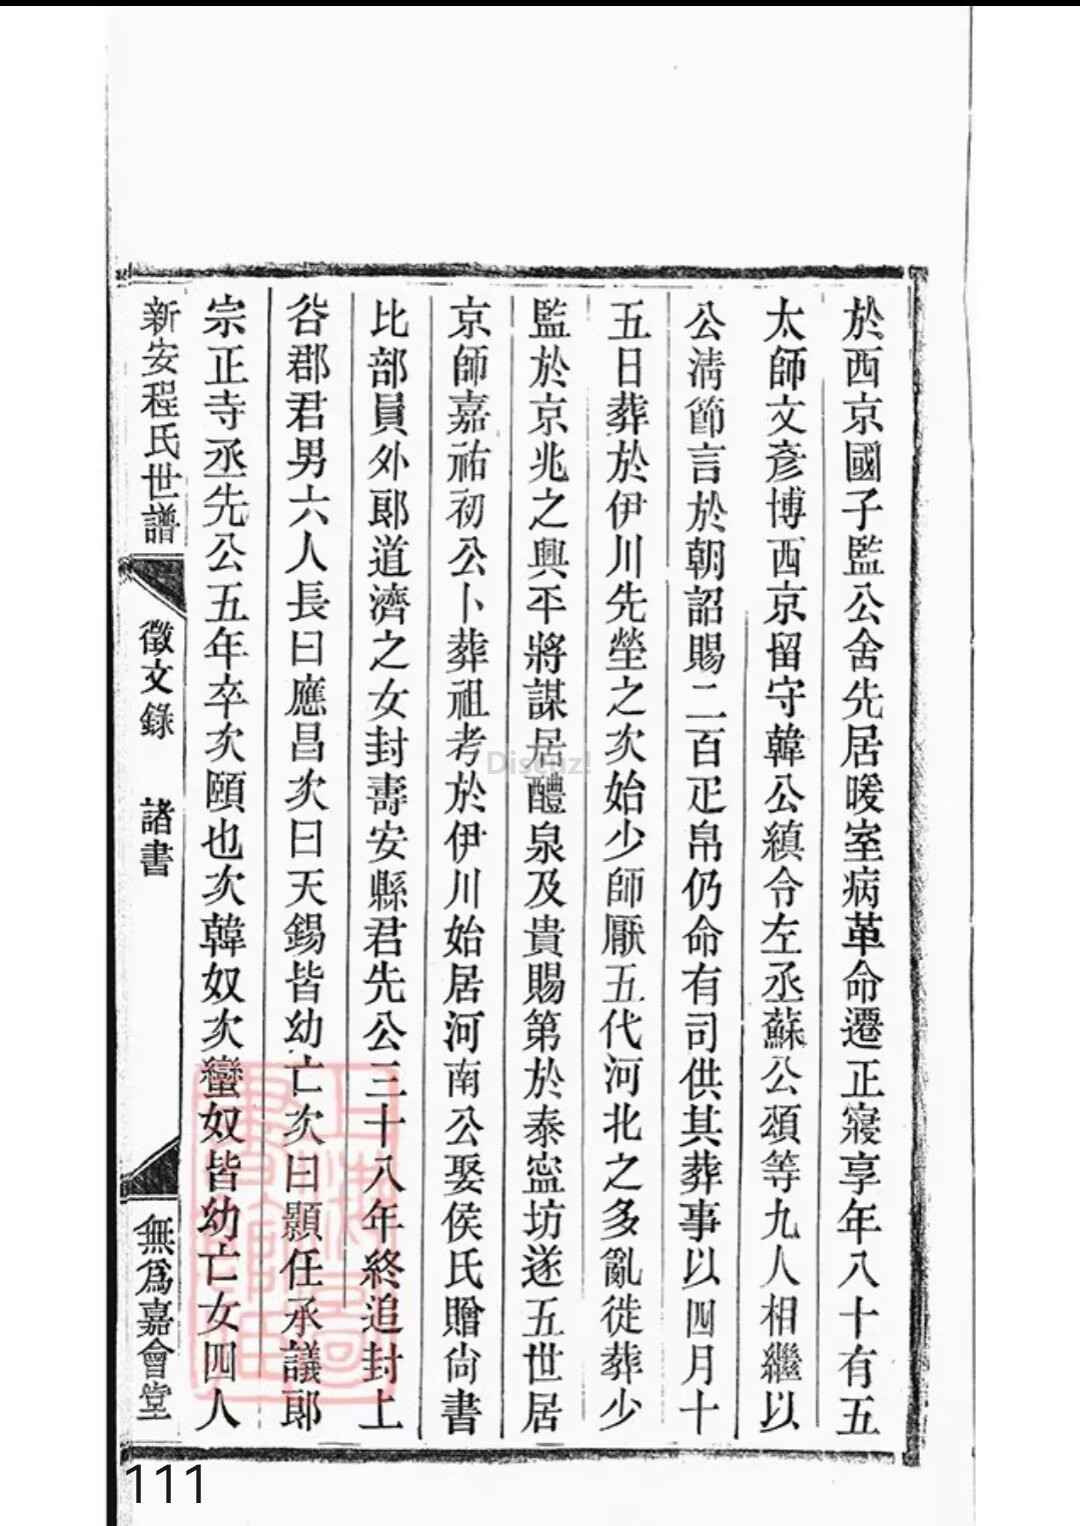 於西京國子監公舍先居暖室病革命遷正寢享年八十有五
太師文彥博西京留守韓公縝令左丞蘇公頌等九人相繼以
公淸節言於朝詔賜二百疋帛仍命有司供其葬事以四月十
五日葬於伊川先塋之次始少師厭五代河北之多亂徙葬少
監於京兆之興平將謀居醴泉及貴賜第於泰寍坊遂五世居
京師嘉祐初公卜葬祖考於伊川始居河南公娶侯氏贈尙書
比部員外郎道濟之女封壽安縣君先公三十八年終追封上
谷郡君男六人長曰應昌次曰天錫皆幼亡次曰顥任承議郎
宗正寺丞先公五年卒次頤也次韓奴次蠻奴皆幼亡女四人
新安程氏世譜 徵文錄 諸書 無爲嘉會堂
Discuz!
111